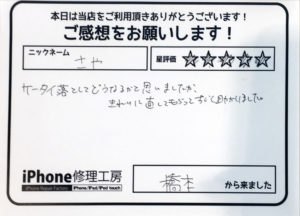 本日は当店をご利用頂きありがとうございます!
ご感想をお願いします!
ニックネーム
さや
星評価 ☆☆☆☆☆
ケータイ落としてどうなるかと思いましたが、
きれいに直してもらってすごく助かりました
iPhone修理工房
iPhone Repair Factory iPhone/iPad/iPod touch
橋本 から来ました